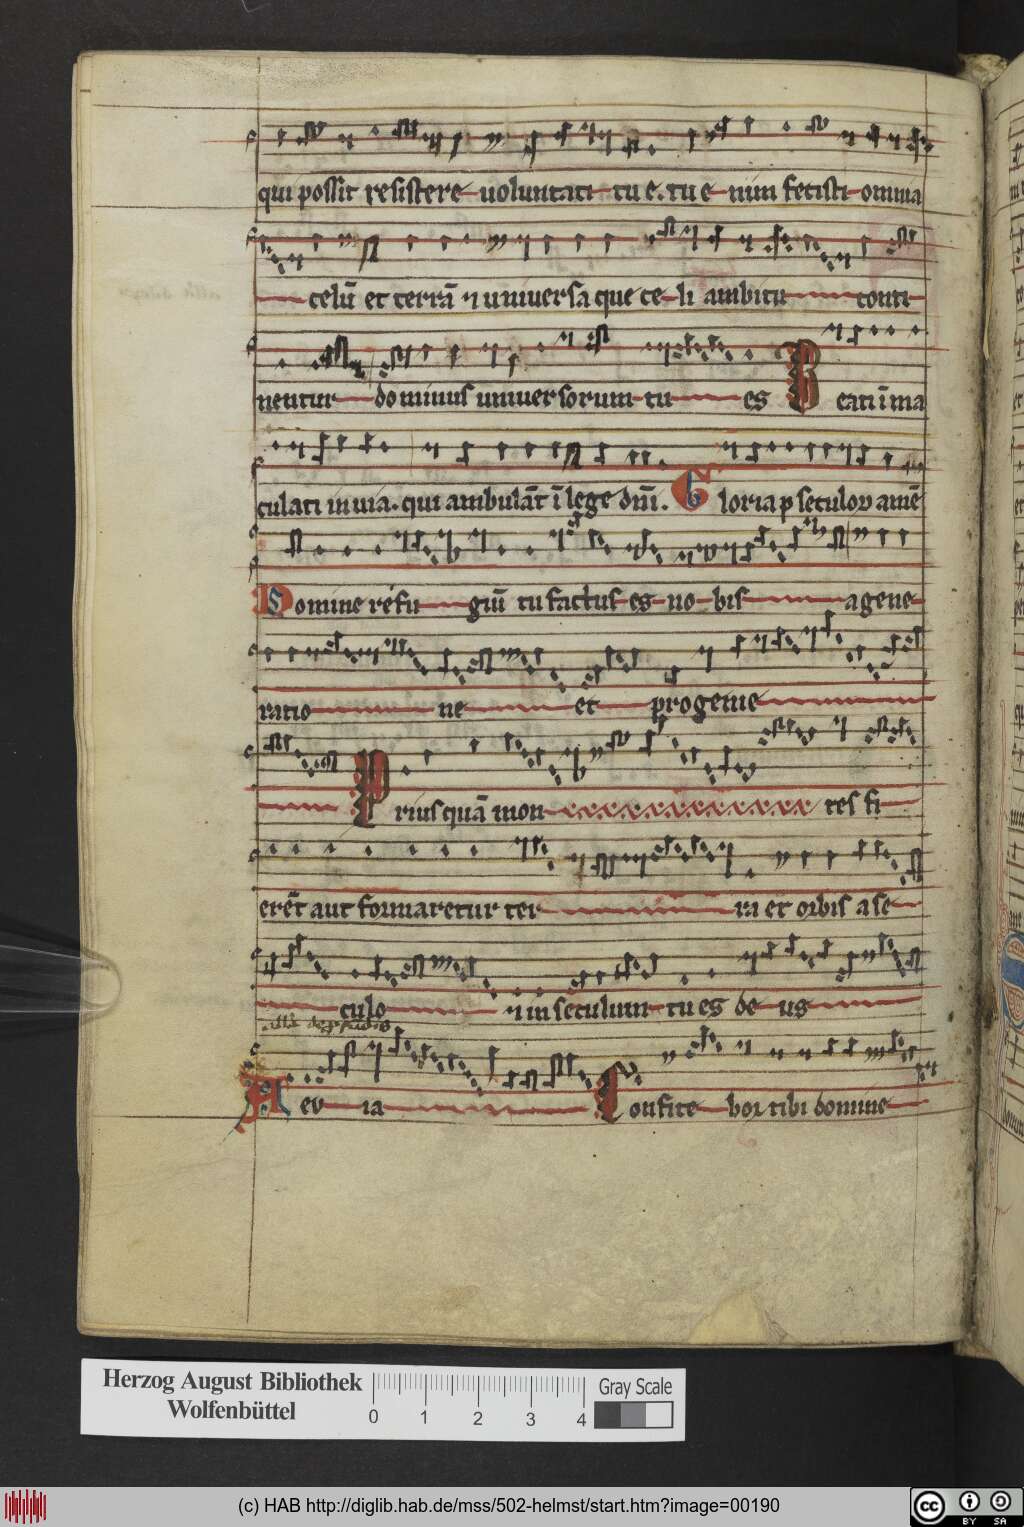 qui possit resistere uoluntati tue. tue nim fecisti omnia
celū et terrā ⁊ uniuersa que celi ambitu conti
nentur dominus uniuersorum tu es Beati īma
culati in uia. qui ambulāt ī lege dm̄. Gloria p seculoꝝ amē
Domine refugiū tu factus es nobis a gene
ratione et progenie
Priusquā montes fi
erēt aut formaretur terra et orbis a se
culo ⁊ in seculum tu es deus
Aeuia Confitebor tibi domine
Herzog August Bibliothek
Wolfenbüttel
0 1 2 3 4
Gray Scale
(c) HAB http://diglib.hab.de/mss/502-helmst/start.htm?image=00190
cc BY SA